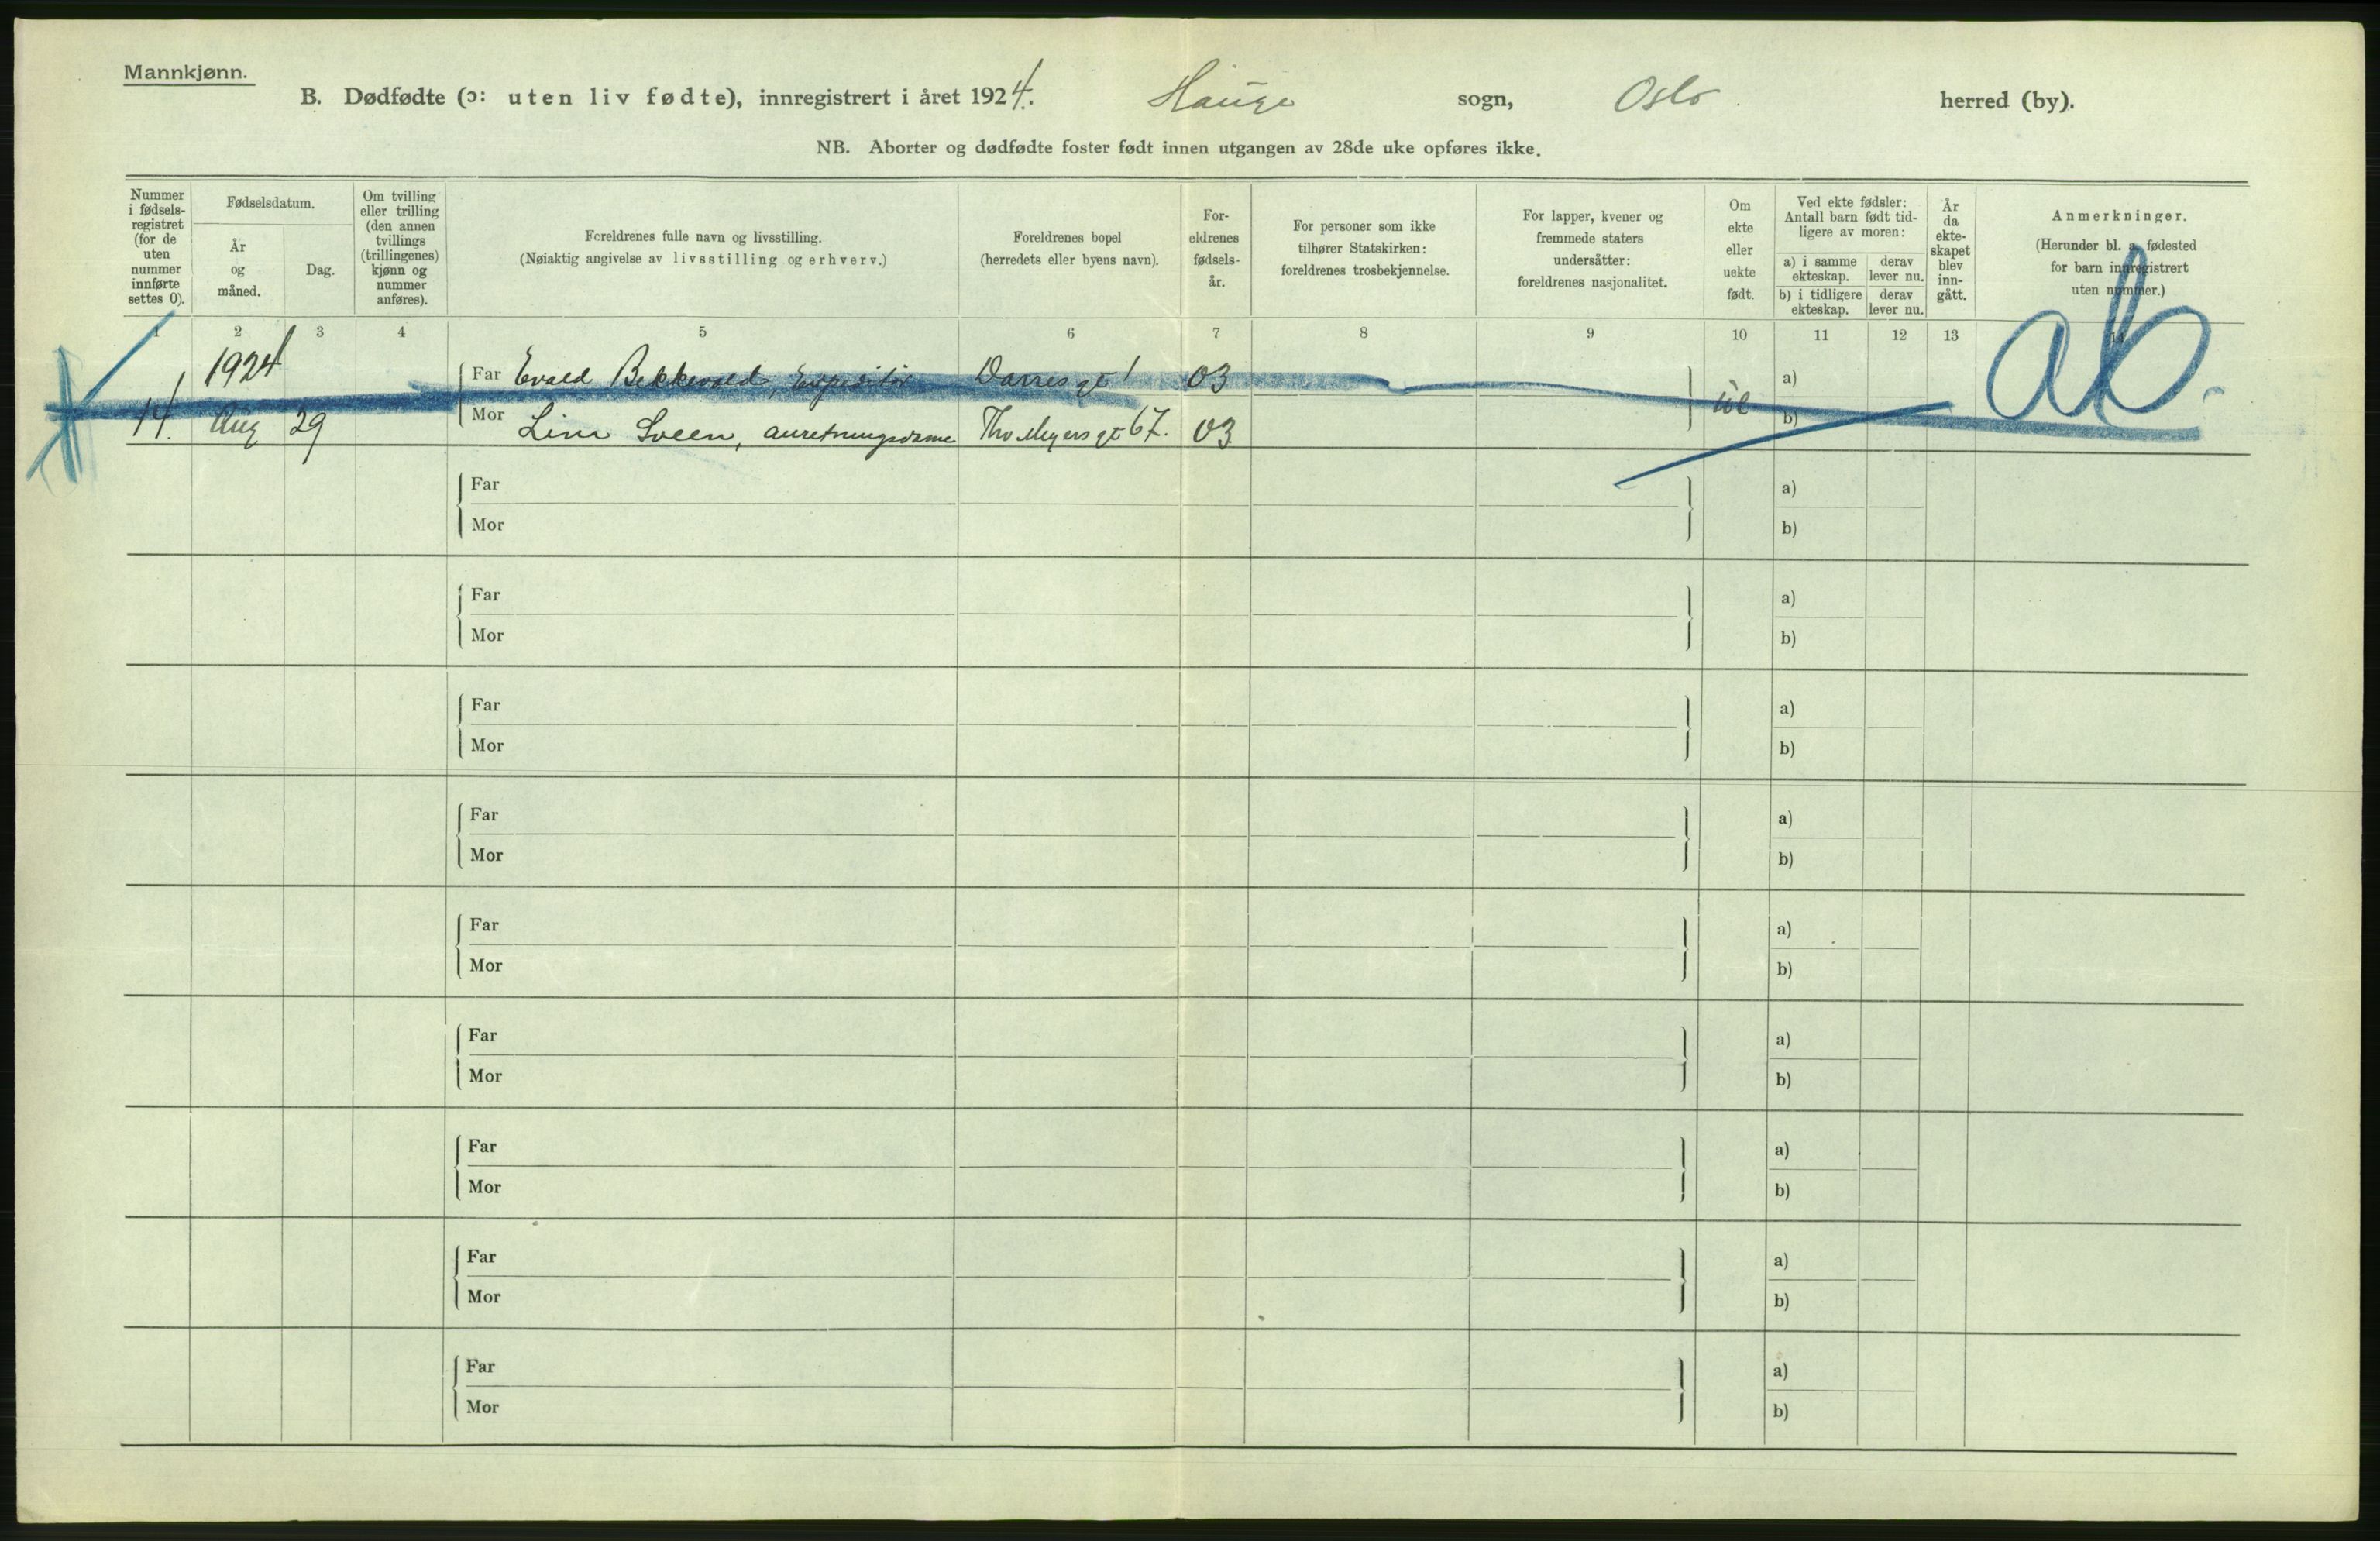 Mannkjønn.
B. Dødfødte (ɔ: uten liv fødte), innregistrert i året 1924. Hauge sogn, Oslo herred (by).
NB. Aborter og dødfødte foster født innen utgangen av 28de uke opføres ikke.
Nummer i fødsels-registret (for de uten nummer innførte settes 0).
Fødselsdatum.
År og måned.
Dag.
Om tvilling eller trilling (den annen tvillings (trillingenes) kjønn og nummer anføres).
Foreldrenes fulle navn og livsstilling.
(Nøiaktig angivelse av livsstilling og erhverv.)
Foreldrenes bopel
(herredets eller byens navn).
For-eldrenes fødsels-år.
For personer som ikke tilhører Statskirken: foreldrenes trosbekjennelse.
For lapper, kvener og fremmede staters undersåtter: foreldrenes nasjonalitet.
Om ekte eller uekte født.
Ved ekte fødsler: Antall barn født tid-ligere av moren:
a) i samme ekteskap.
derav lever nu.
b) i tidligere ekteskap.
derav lever nu.
År da ekte-skapet blev inn-gått.
Anmerkninger.
(Herunder bl. a. fødested for barn innregistrert uten nummer.)
1 2 3 4 5 6 7 8 9 10 11 12 13 14
1924
Far Evald Bekkevold, Expeditør Darres gt 1 03 a)
14. Aug 29 Mor Lina Sveen, anretningsdame Thv Meyers gt 67. 03 ue b)
ab.
Far a)
Mor b)
Far a)
Mor b)
Far a)
Mor b)
Far a)
Mor b)
Far a)
Mor b)
Far a)
Mor b)
Far a)
Mor b)
Far a)
Mor b)
Far a)
Mor b)